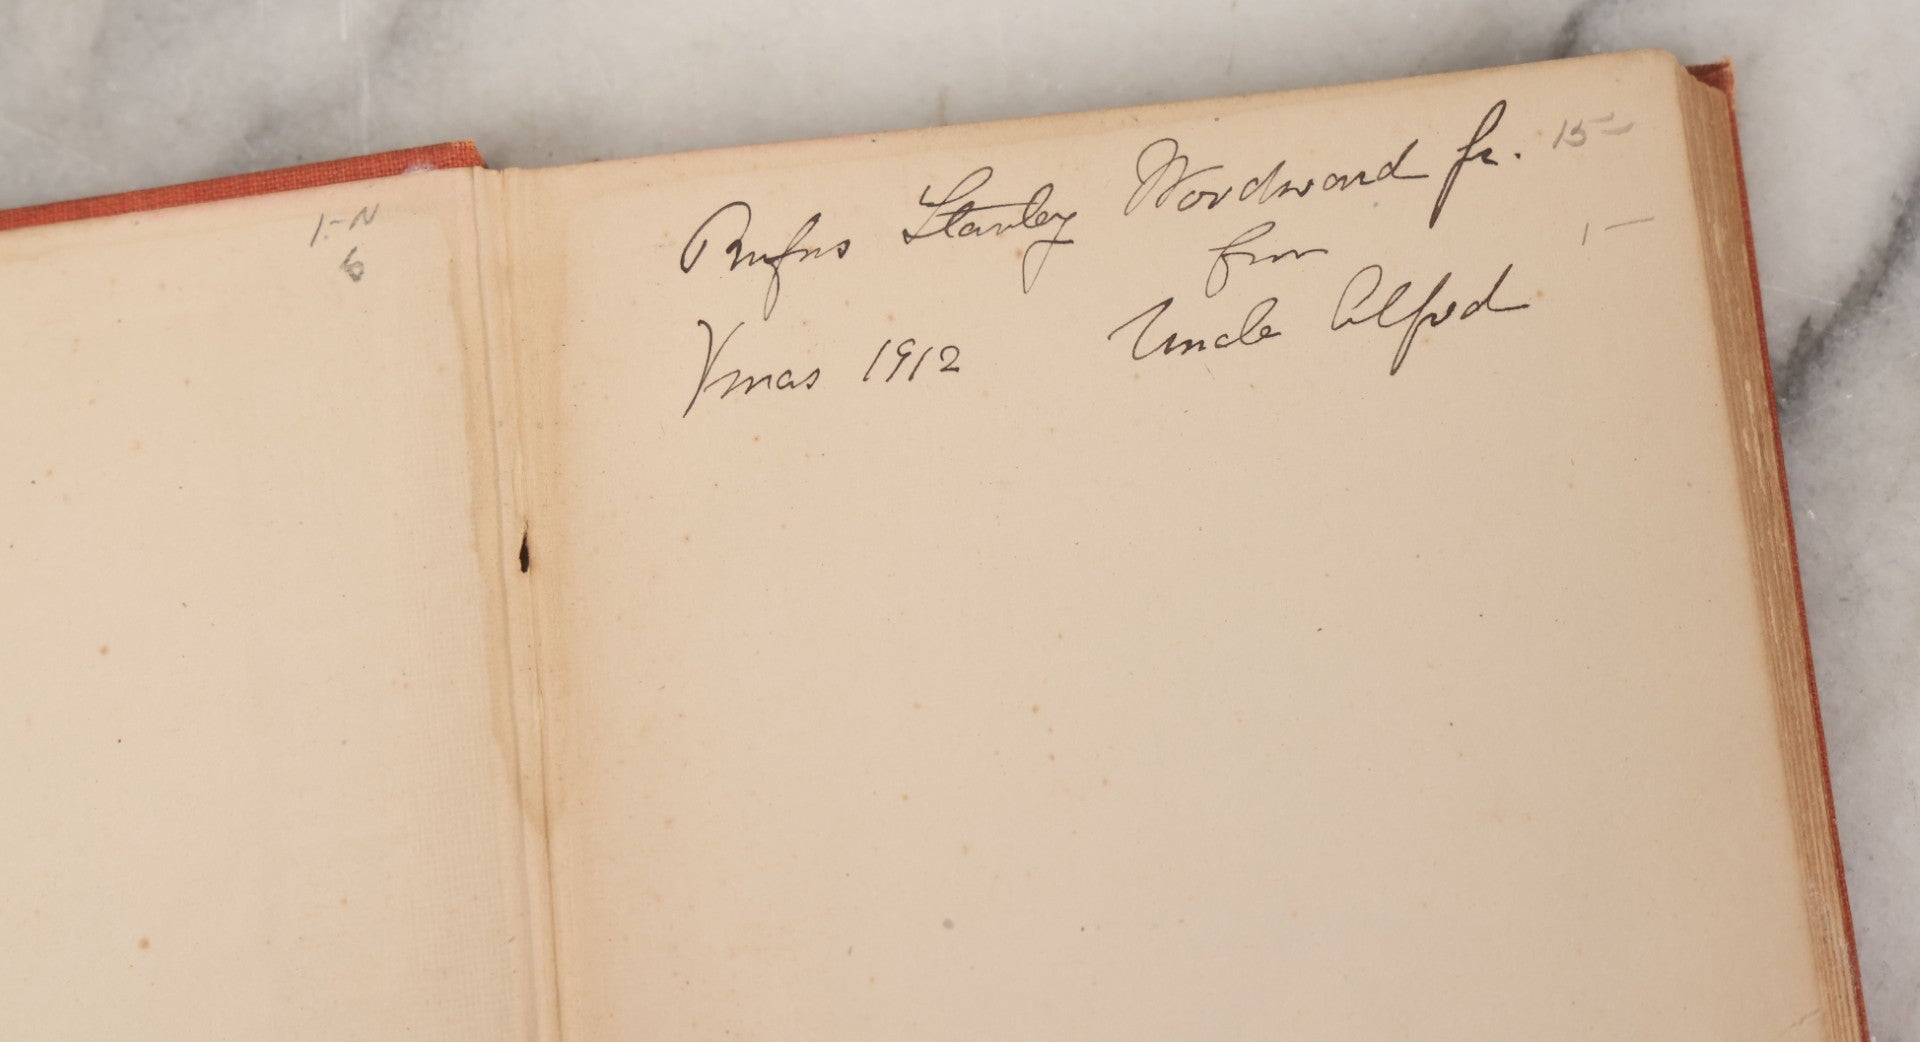 1-N
6
Rufus Stanley Woodward Jr. 15-
from
1-
Xmas 1912 Uncle Alfred